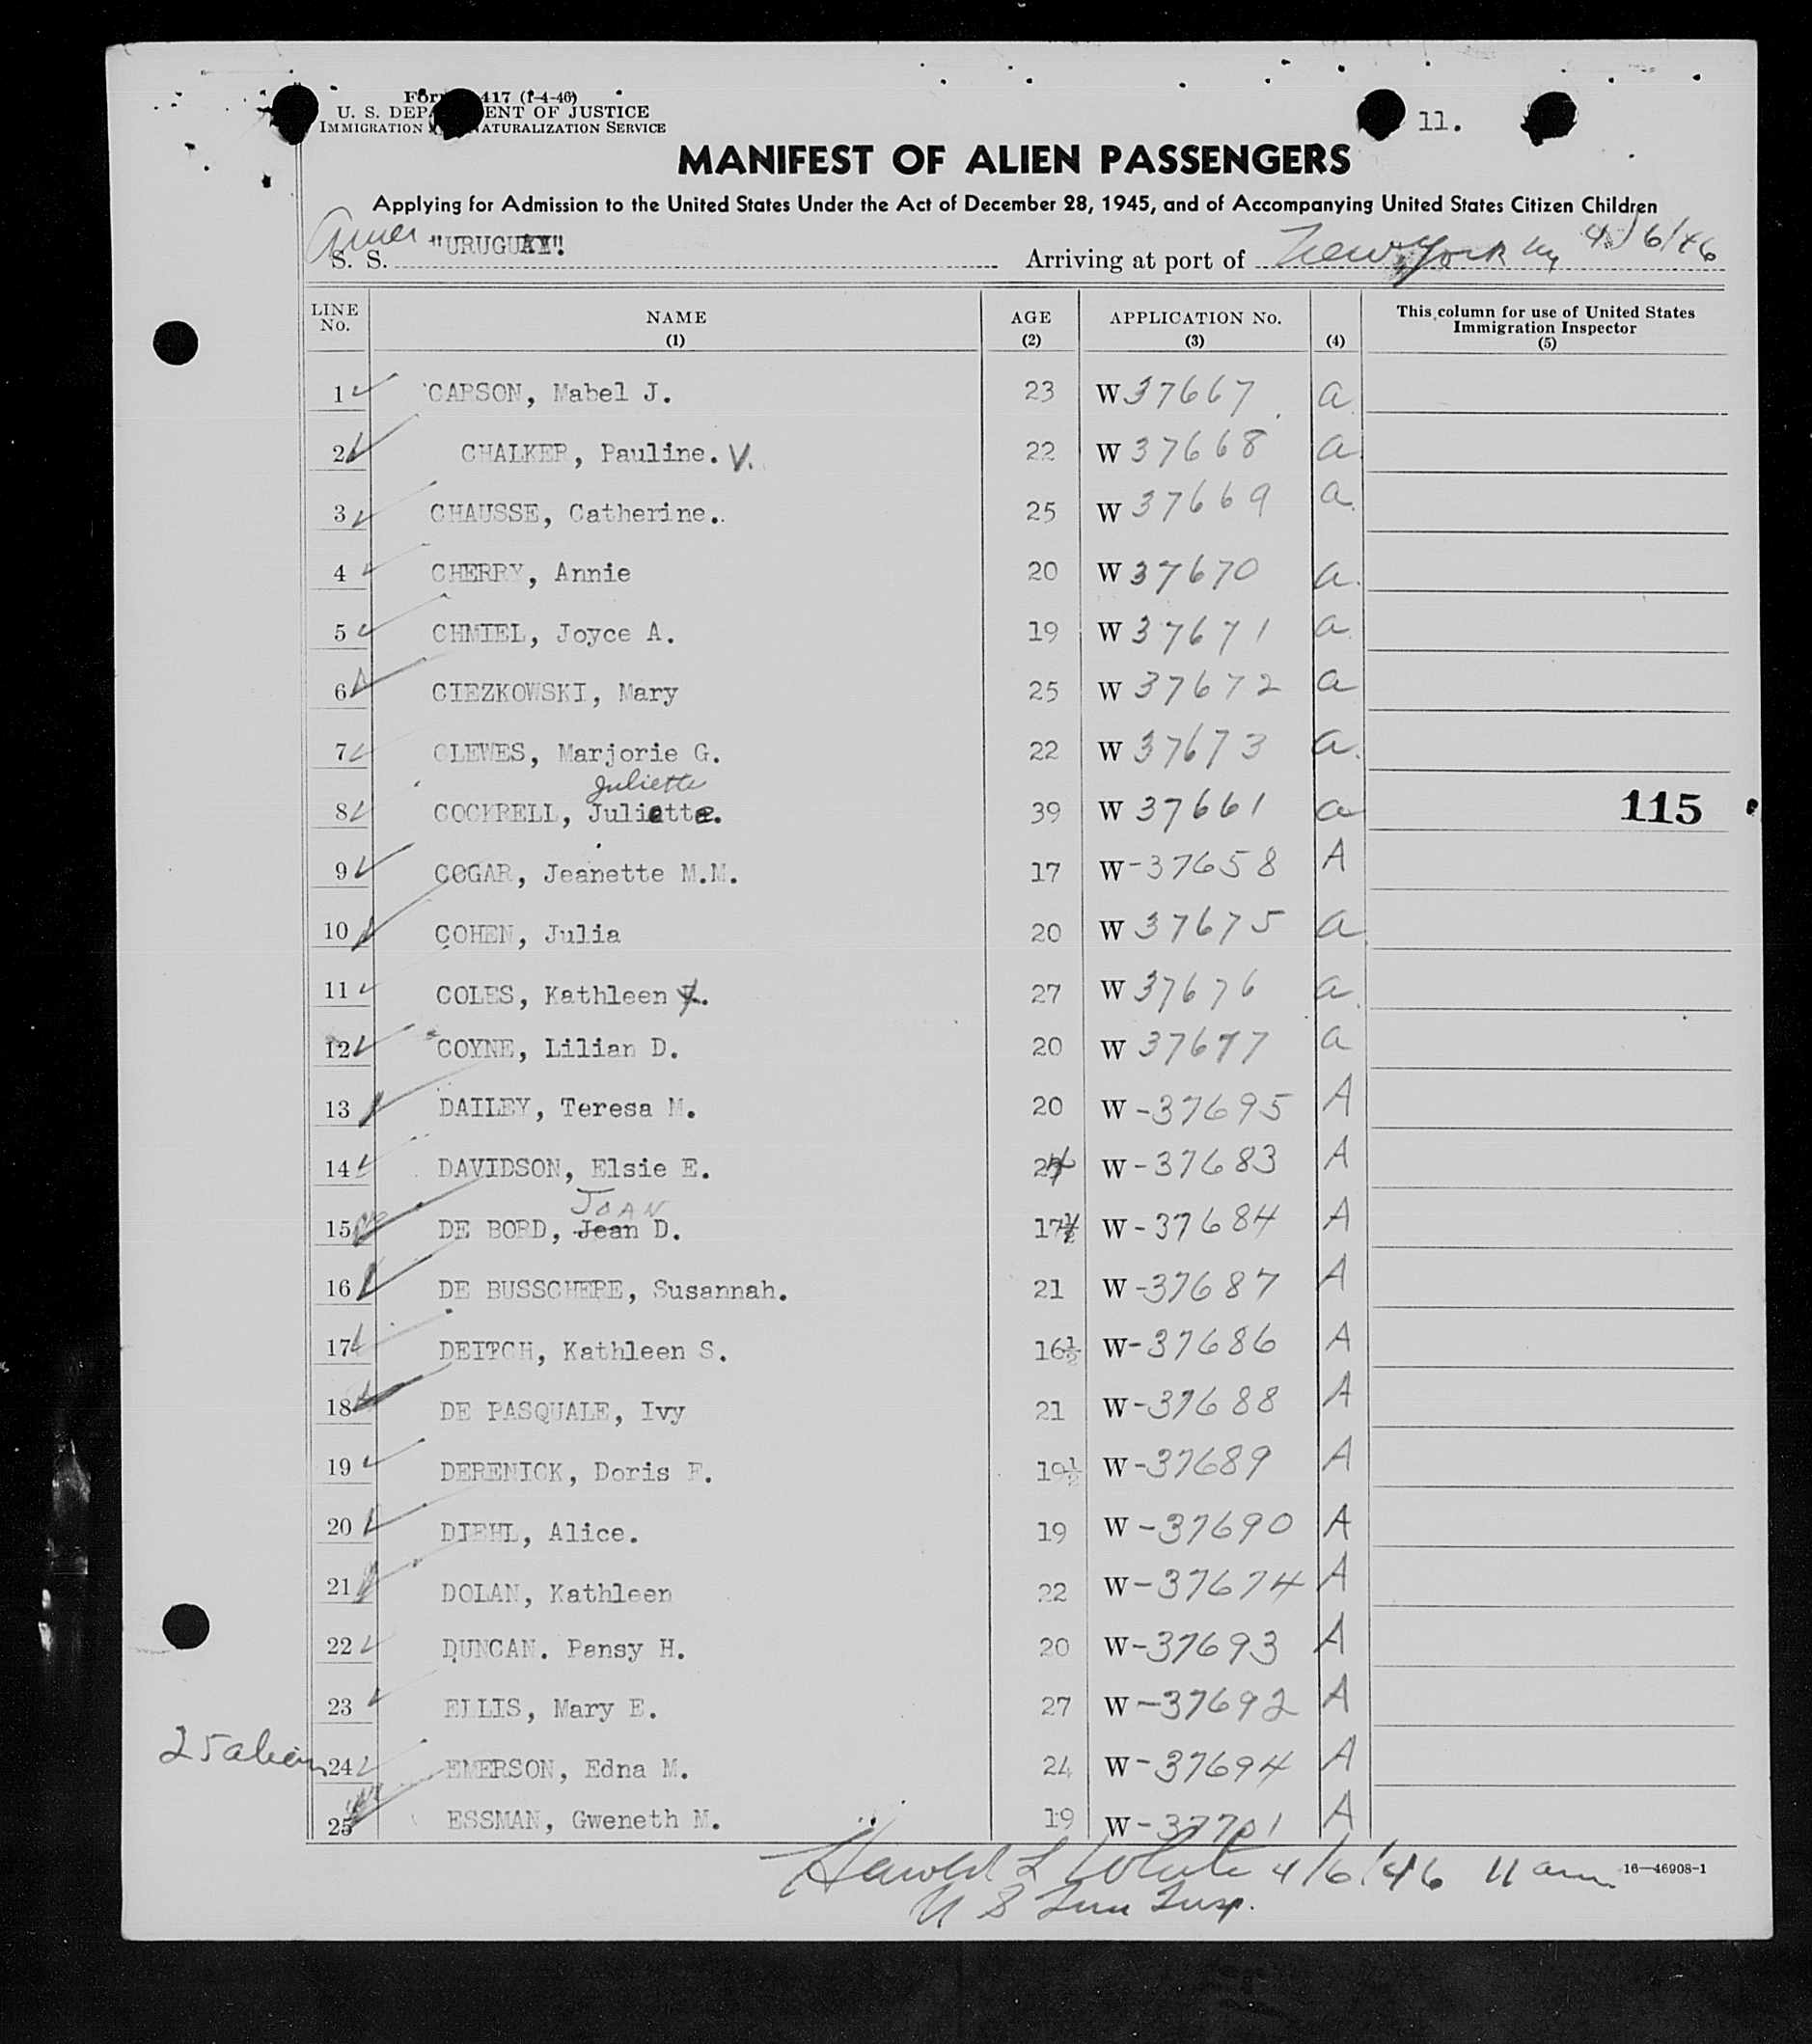 Form 417 (1-4-46)
U. S. DEPARTMENT OF JUSTICE
IMMIGRATION NATURALIZATION SERVICE
11.
MANIFEST OF ALIEN PASSENGERS
Applying for Admission to the United States Under the Act of December 28, 1945, and of Accompanying United States Citizen Children
Amer
S. S. "URUGUAY" Arriving at port of New York Ny 4/6/46
LINE No. NAME (1) AGE (2) APPLICATION No. (3) (4) This column for use of United States Immigration Inspector (5)
1 CARSON, Mabel J. 23 W 37667 a
2 CHALKER, Pauline. V. 22 W 37668 a
3 CHAUSSE, Catherine. 25 W 37669 a
4 CHERRY, Annie 20 W 37670 a
5 CHMIEL, Joyce A. 19 W 37671 a
6 CIEZKOWSKI, Mary 25 W 37672 a
7 CLEWES, Marjorie G. 22 W 37673 a
Juliette
8 COCKRELL, Juliette. 39 W 37661 a 115
9 COGAR, Jeanette M.M. 17 W-37658 A
10 COHEN, Julia 20 W 37675 a
11 COLES, Kathleen 27 W 37676 a
12 COYNE, Lilian D. 20 W 37677 a
13 DAILEY, Teresa M. 20 W-37695 A
14 DAVIDSON, Elsie E. W-37683 A
JOAN
15 DE BORD, Jean D. 17½ W-37684 A
16 DE BUSSCHERE, Susannah. 21 W-37687 A
17 DEITCH, Kathleen S. 16½ W-37686 A
18 DE PASQUALE, Ivy 21 W-37688 A
19 DERENICK, Doris F. 19½ W-37689 A
20 DIEHL, Alice. 19 W-37690 A
21 DOLAN, Kathleen 22 W-37674 A
22 DUNCAN. Pansy H. 20 W-37693 A
23 ELLIS, Mary E. 27 W-37692 A
25 alien
24 EMERSON, Edna M. 24 W-37694 A
25 ESSMAN, Gweneth M. 19 W-37701 A
Harold L White 4/6/46 11 am
16—46908-1
U S Imm Insp.